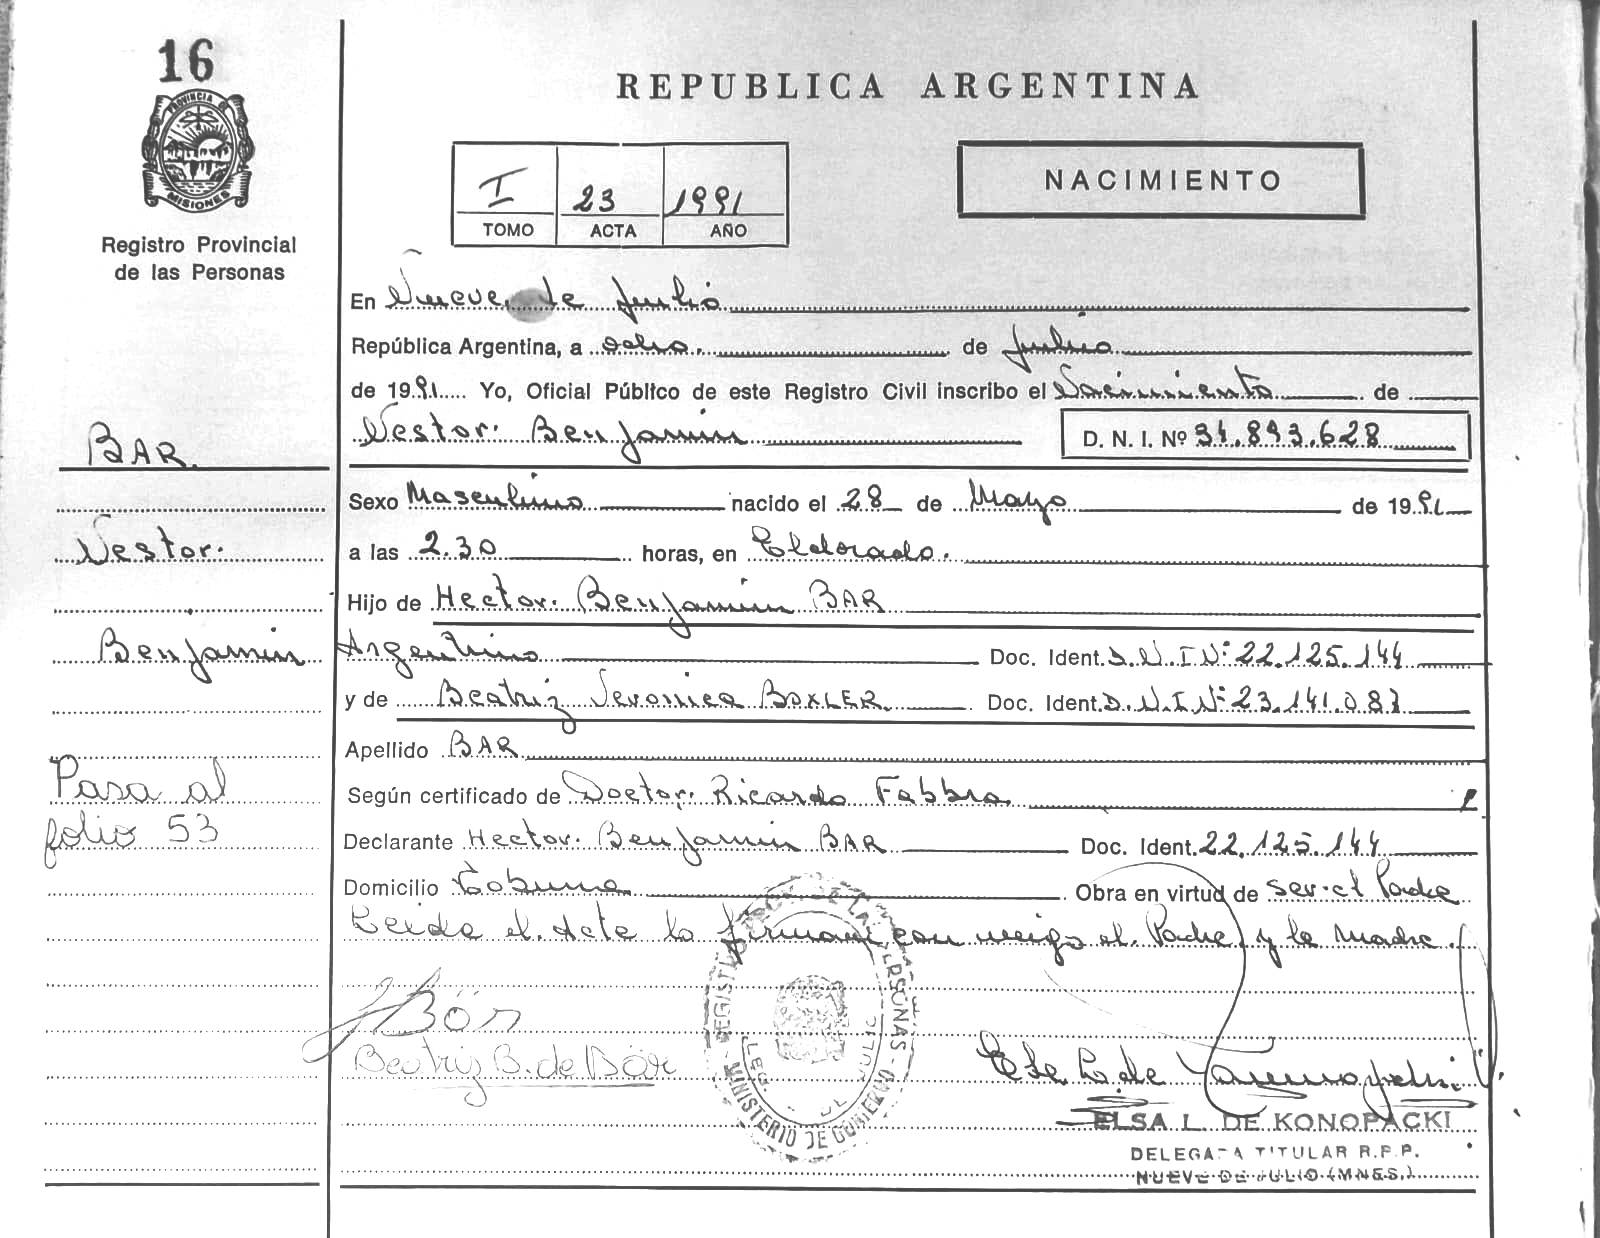 16
PROVINCIA D
MISIONES
Registro Provincial
de las Personas
REPUBLICA ARGENTINA
I 23 1991
TOMO ACTA AÑO
NACIMIENTO
En Nueve de Julio
República Argentina, a ocho. de Julio
de 1991 Yo, Oficial Público de este Registro Civil inscribo el Nacimiento de
Nestor. Benjamin D. N. I. Nº 31.893.628
BAR.
Sexo Masculino nacido el 28 de Mayo de 1991
Nestor.
a las 2.30 horas, en Eldorado.
Hijo de Hector. Benjamin BAR
Benjamin
Argentino Doc. Ident. D.N.I Nº 22.125.144
y de Beatriz Veronica BOXLER. Doc. Ident. D.N.I Nº 23.141.087
Apellido BAR
Pasa al
folio 53
Según certificado de Doctor. Ricardo Fabbro
Declarante Hector. Benjamin BAR Doc. Ident. 22.125.144
Domicilio Tobuna Obra en virtud de ser el Padre
Leida el Acta la firman con migo el Padre y la Madre.
Bär
Beatriz B. de Bär
REGISTRO DE LAS PERSONAS - MINISTERIO DE GOBIERNO -
ELSA L. DE KONOPACKI
DELEGADA TITULAR R.P.P.
NUEVE DE JULIO (MNES.)